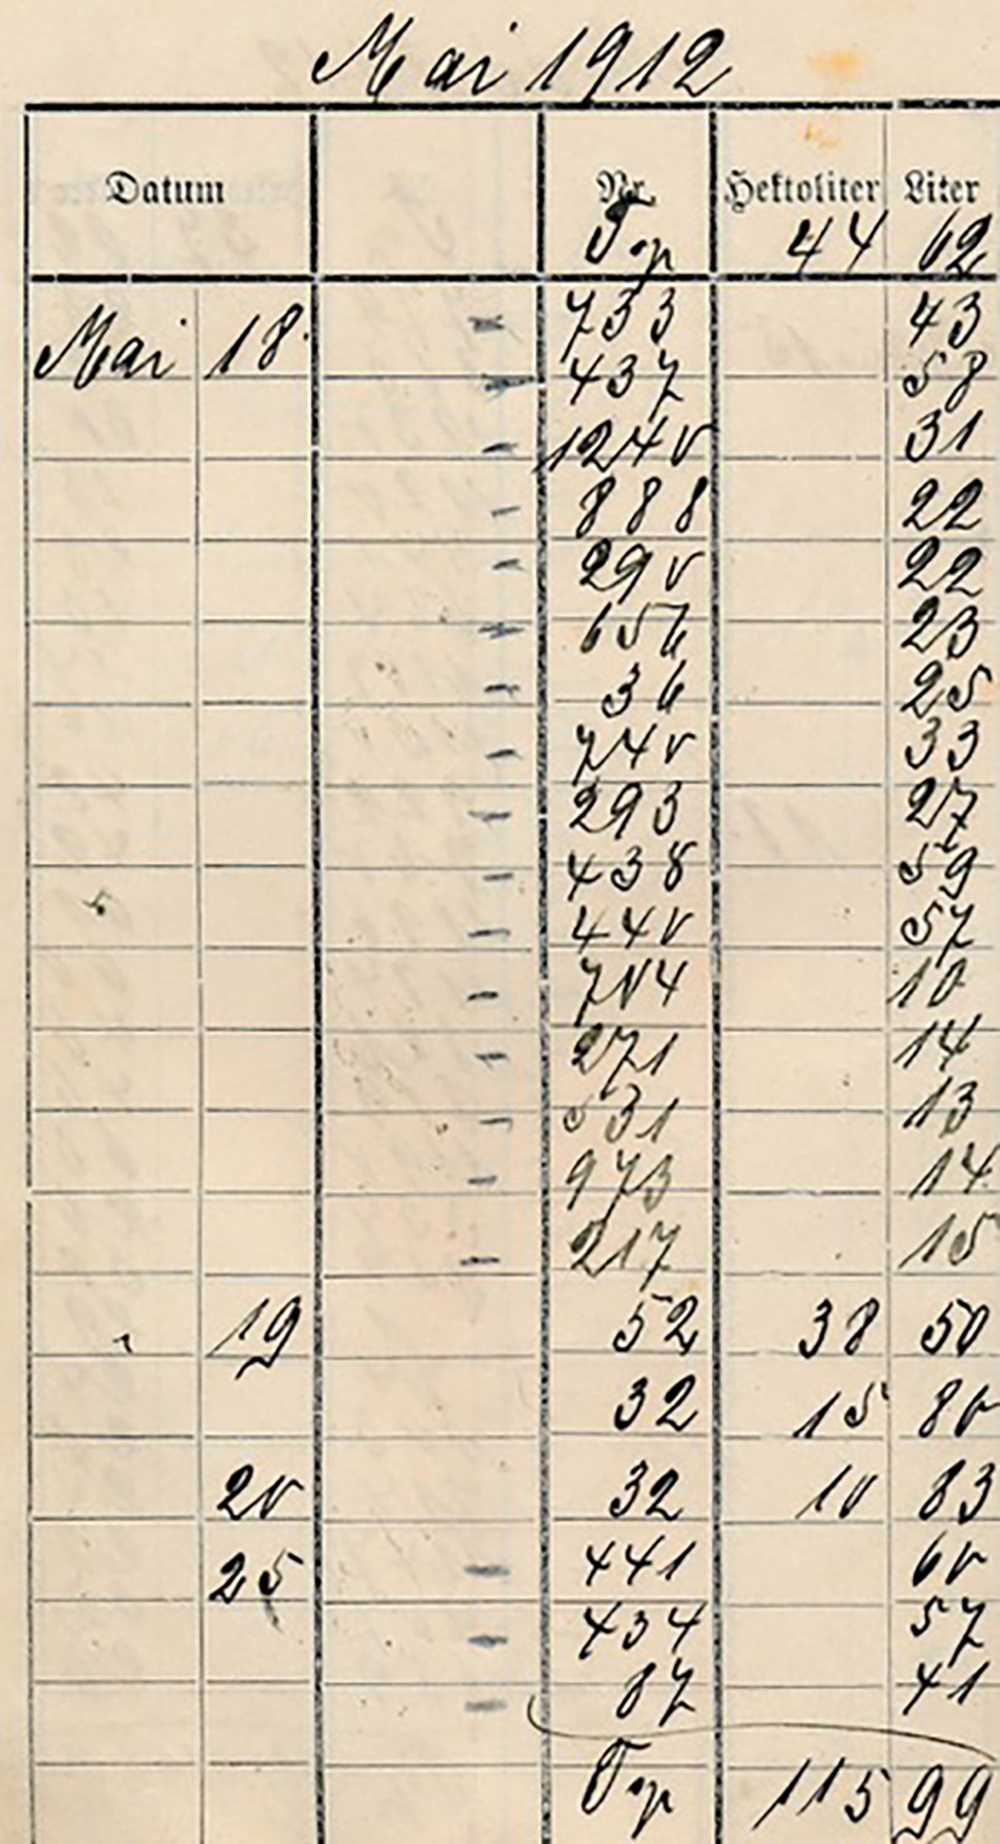 Mai 1912
Datum Nr. Hektoliter Liter
44 62
Mai 18. 733 43
437 58
1240 31
888 22
290 22
656 23
36 25
740 33
293 27
438 59
440 57
704 10
271 14
531 13
973 14
217 15
" 19 52 38 50
32 15 80
20 32 10 83
25 441 60
434 57
87 41
115 99